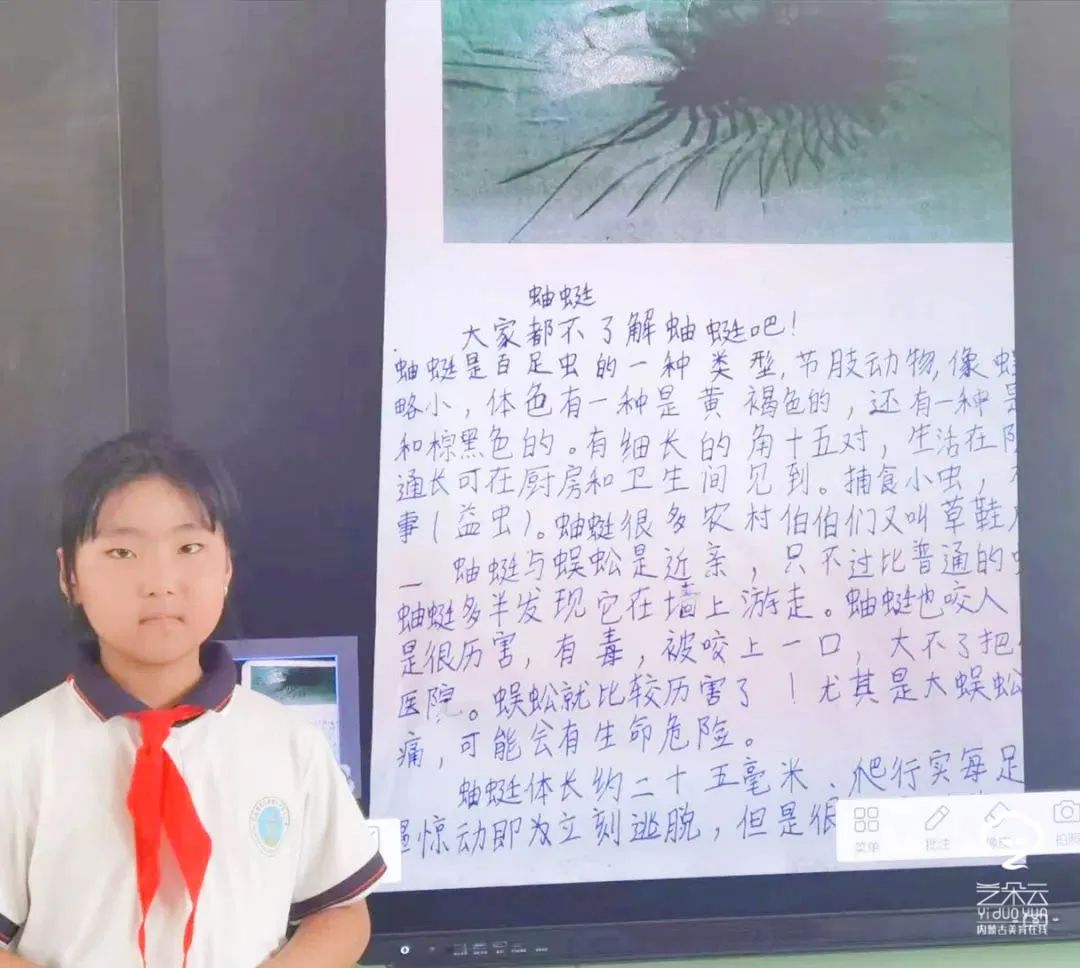 蚰蜒
大家都不了解蚰蜒吧！
蚰蜒是百足虫的一种类型，节肢动物，像
略小，体色有一种是黄褐色的，还有一种是
和棕黑色的。有细长的角十五对，生活在
通长可在厨房和卫生间见到。捕食小虫，
事（益虫）。蚰蜒很多农村伯伯们又叫草鞋
蚰蜒与蜈蚣是近亲，只不过比普通的
蚰蜒多半发现它在墙上游走。蚰蜒也咬人
是很历害，有毒，被咬上一口，大不了把
医院。蜈蚣就比较历害了！尤其是大蜈蚣
痛，可能会有生命危险。
蚰蜒体长约二十五毫米、爬行实每足
惊动即为立刻逃脱，但是很
菜单
批注
拍照
艺朵云
YiDUOYUN
内蒙古美育在线